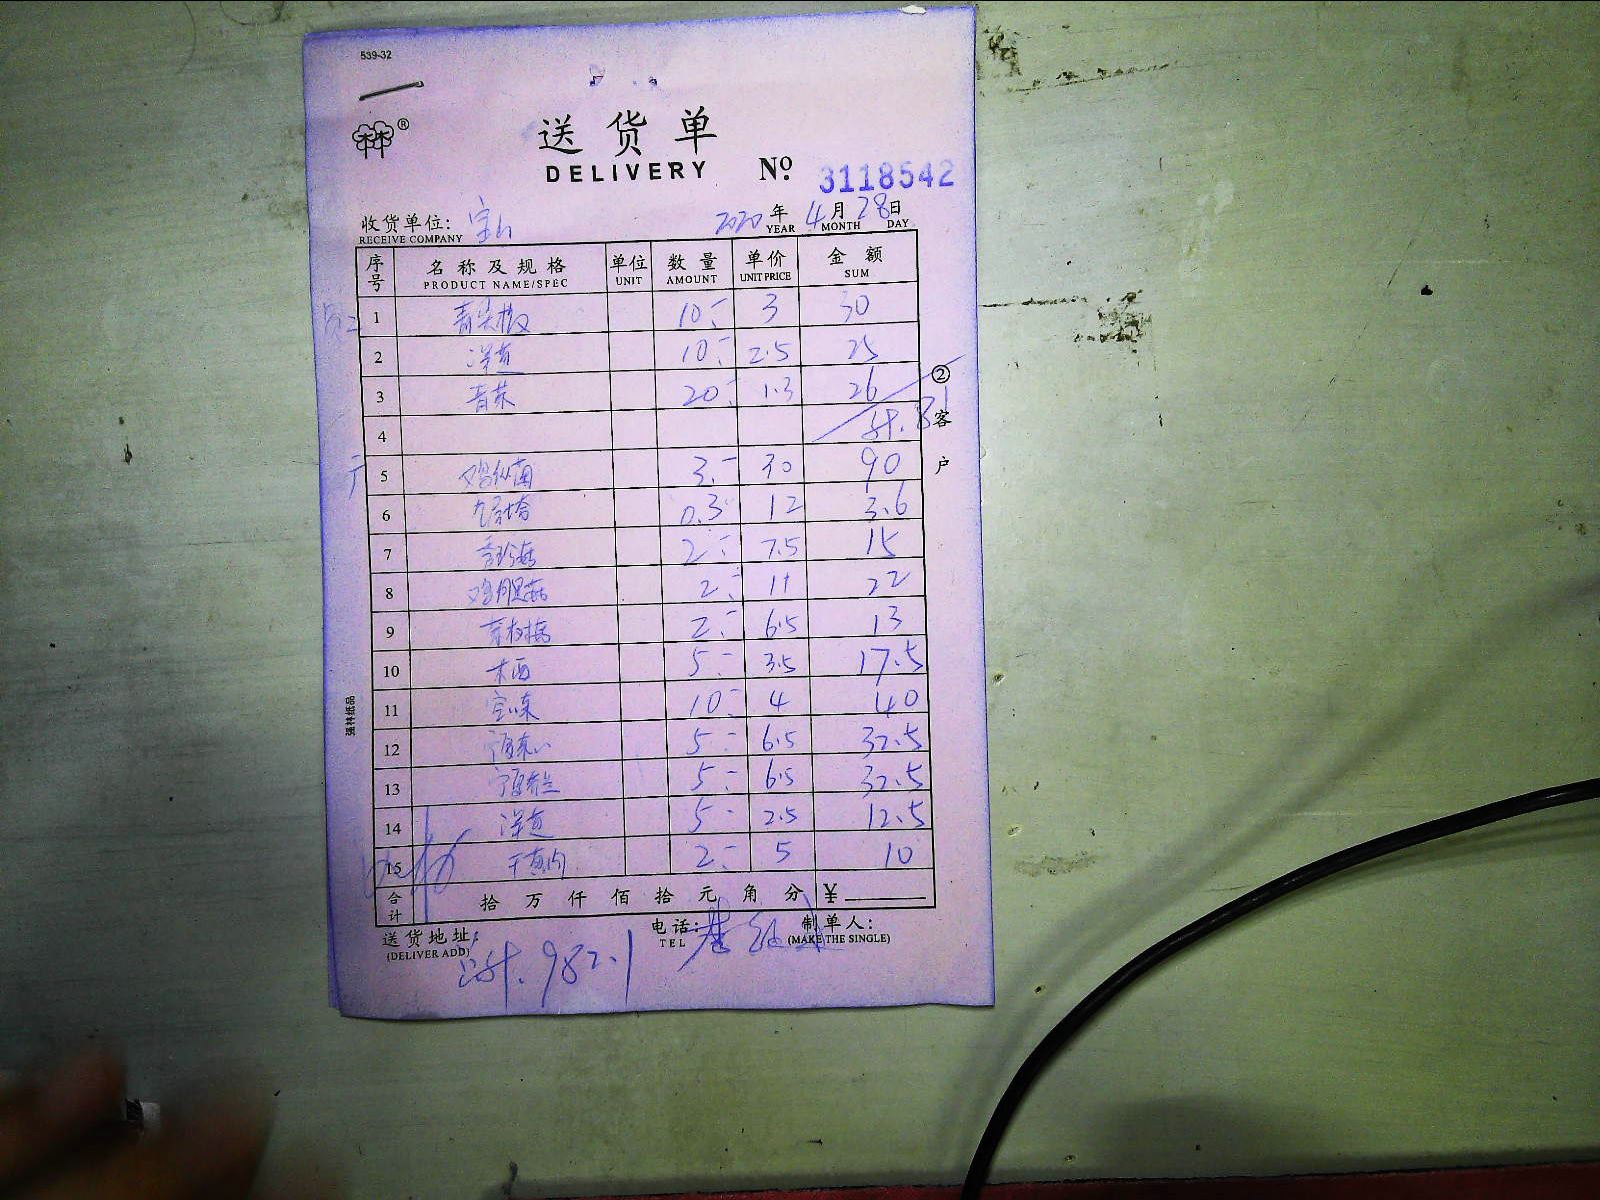 539-32
林®
送货单
DELIVERY No. 3118542
收货单位: 宝山 2020年 4月 28日
RECEIVE COMPANY YEAR MONTH DAY
序号 名称及规格 单位 数量 单价 金额
PRODUCT NAME/SPEC UNIT AMOUNT UNIT PRICE SUM
1 青尖椒 10 3 30
2 洋葱 10 2.5 25
3 20 1.3 26
4 计. 81
5 3 30 90
6 九层塔 0.3 12 3.6
7 2 7.5 15
8 2 11 22
9 2 6.5 13
10 木西 5 3.5 17.5
11 10 4 40
12 5 6.5 32.5
13 5 6.5 32.5
14 洋葱 5 2.5 12.5
15 2 5 10
合计 拾 万 仟 佰 拾 元 角 分 ¥
送货地址: 电话: 制单人:
(DELIVER ADD) TEL (MAKE THE SINGLE)
计. 982.1
② 客户
强林纸品